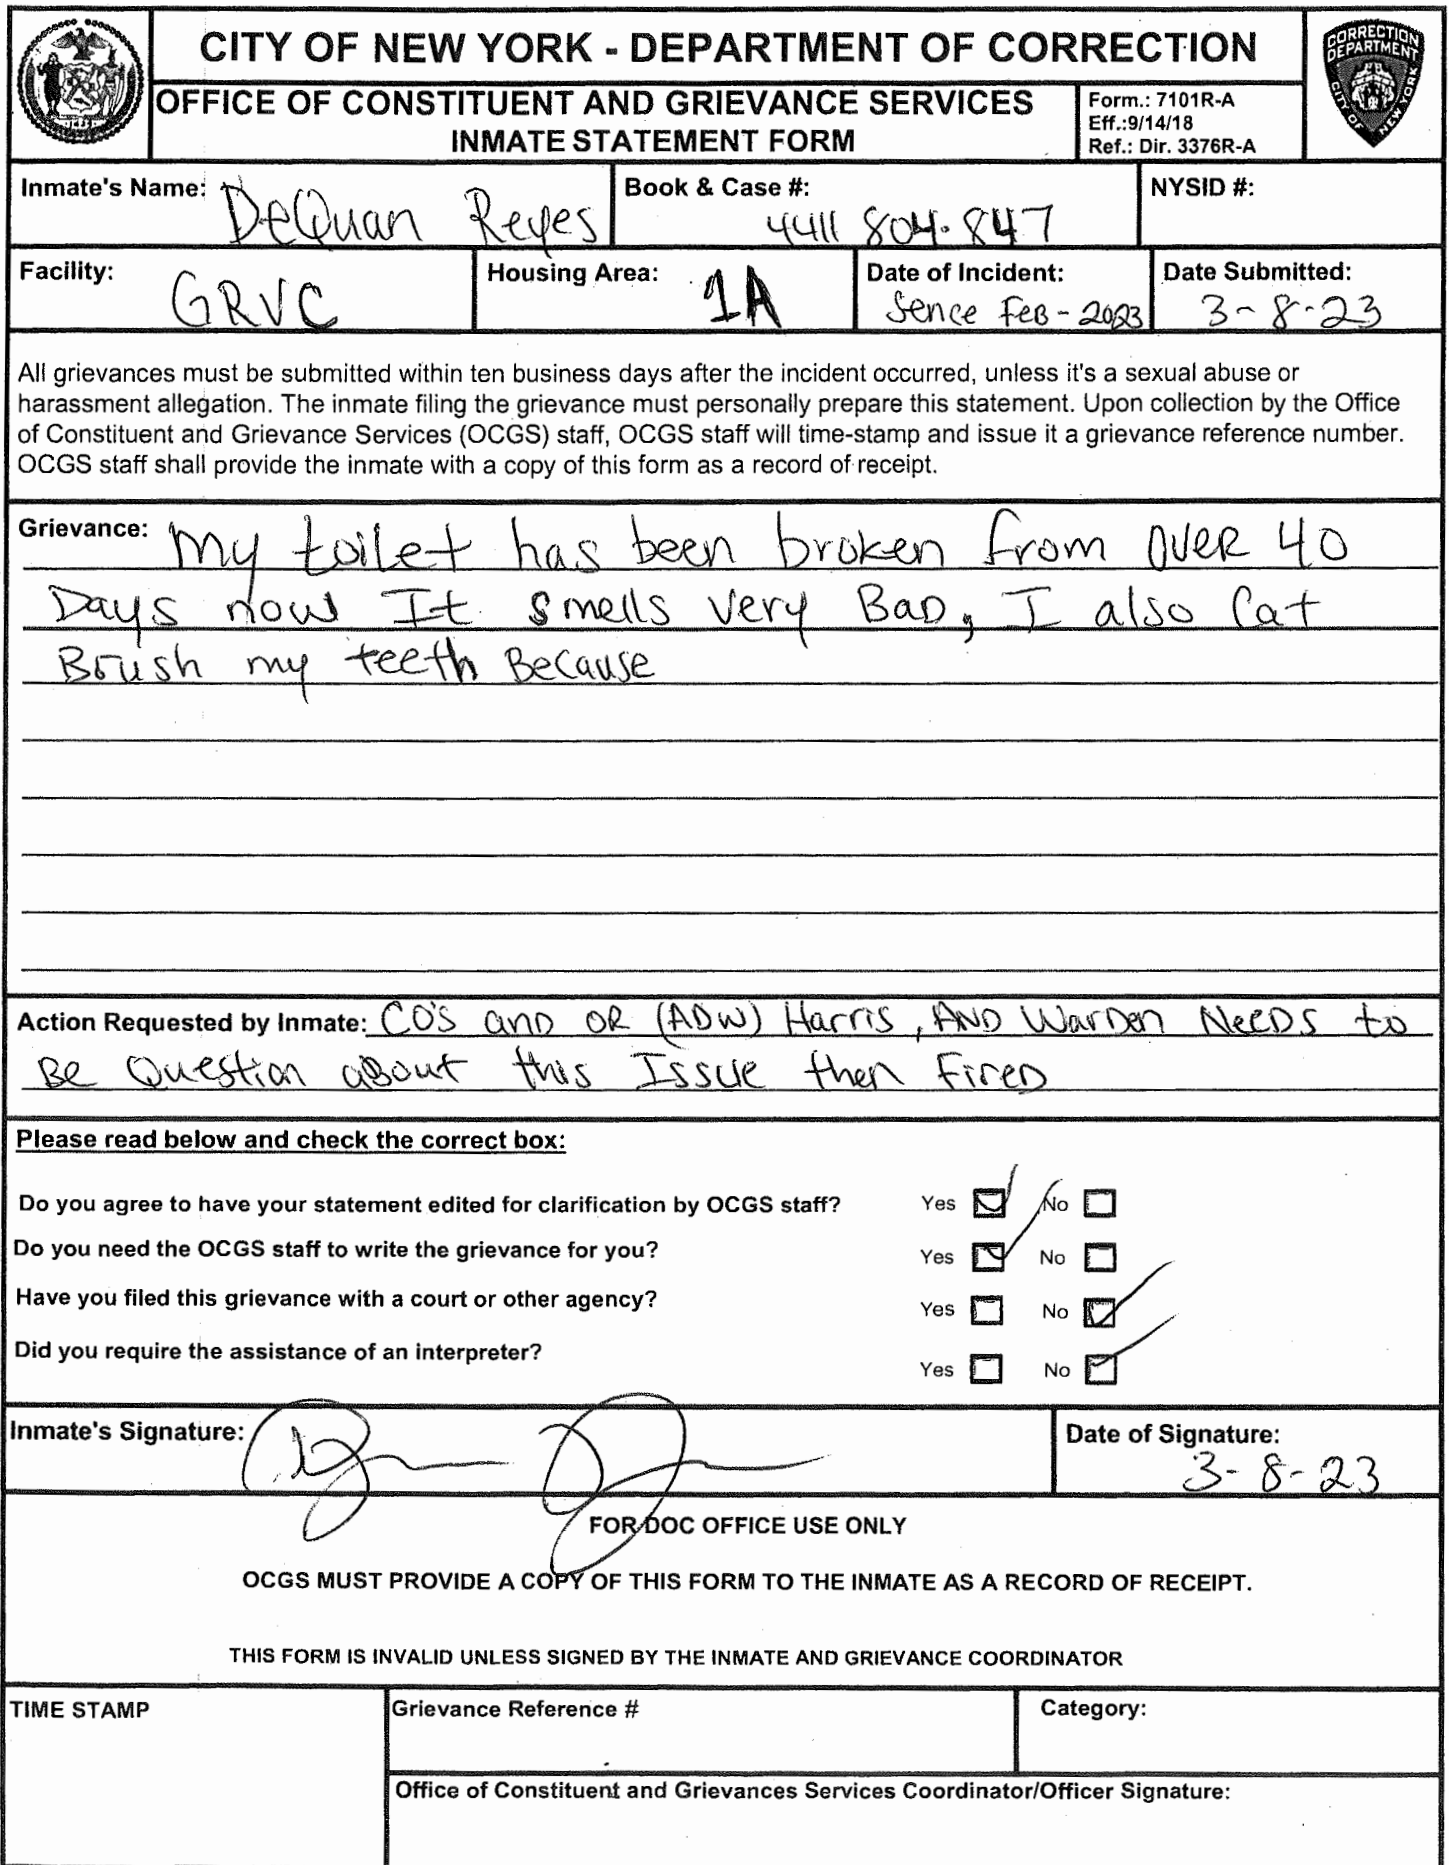 CITY OF NEW YORK - DEPARTMENT OF CORRECTION
OFFICE OF CONSTITUENT AND GRIEVANCE SERVICES
INMATE STATEMENT FORM
Form.: 7101R-A
Eff.:9/14/18
Ref.: Dir. 3376R-A
CORRECTION
DEPARTMENT
CITY OF NEW YORK
Inmate's Name: DeQuan Reyes
Book & Case #: 4411 804.847
NYSID #:
Facility: GRVC
Housing Area: 1A
Date of Incident: Sence Feb - 2023
Date Submitted: 3-8-23
All grievances must be submitted within ten business days after the incident occurred, unless it's a sexual abuse or
harassment allegation. The inmate filing the grievance must personally prepare this statement. Upon collection by the Office
of Constituent and Grievance Services (OCGS) staff, OCGS staff will time-stamp and issue it a grievance reference number.
OCGS staff shall provide the inmate with a copy of this form as a record of receipt.
Grievance: My toilet has been broken from OVER 40
Days now It smells very BAD, I also Cat
Brush my teeth Because
Action Requested by Inmate: CO'S and OR (ADW) Harris, AND Warden NeeDS to
Be Question about this Issue then FireD
Please read below and check the correct box:
Do you agree to have your statement edited for clarification by OCGS staff? Yes No
Do you need the OCGS staff to write the grievance for you? Yes No
Have you filed this grievance with a court or other agency? Yes No
Did you require the assistance of an interpreter? Yes No
Inmate's Signature:
Date of Signature: 3-8-23
FOR DOC OFFICE USE ONLY
OCGS MUST PROVIDE A COPY OF THIS FORM TO THE INMATE AS A RECORD OF RECEIPT.
THIS FORM IS INVALID UNLESS SIGNED BY THE INMATE AND GRIEVANCE COORDINATOR
TIME STAMP
Grievance Reference #
Category:
Office of Constituent and Grievances Services Coordinator/Officer Signature: